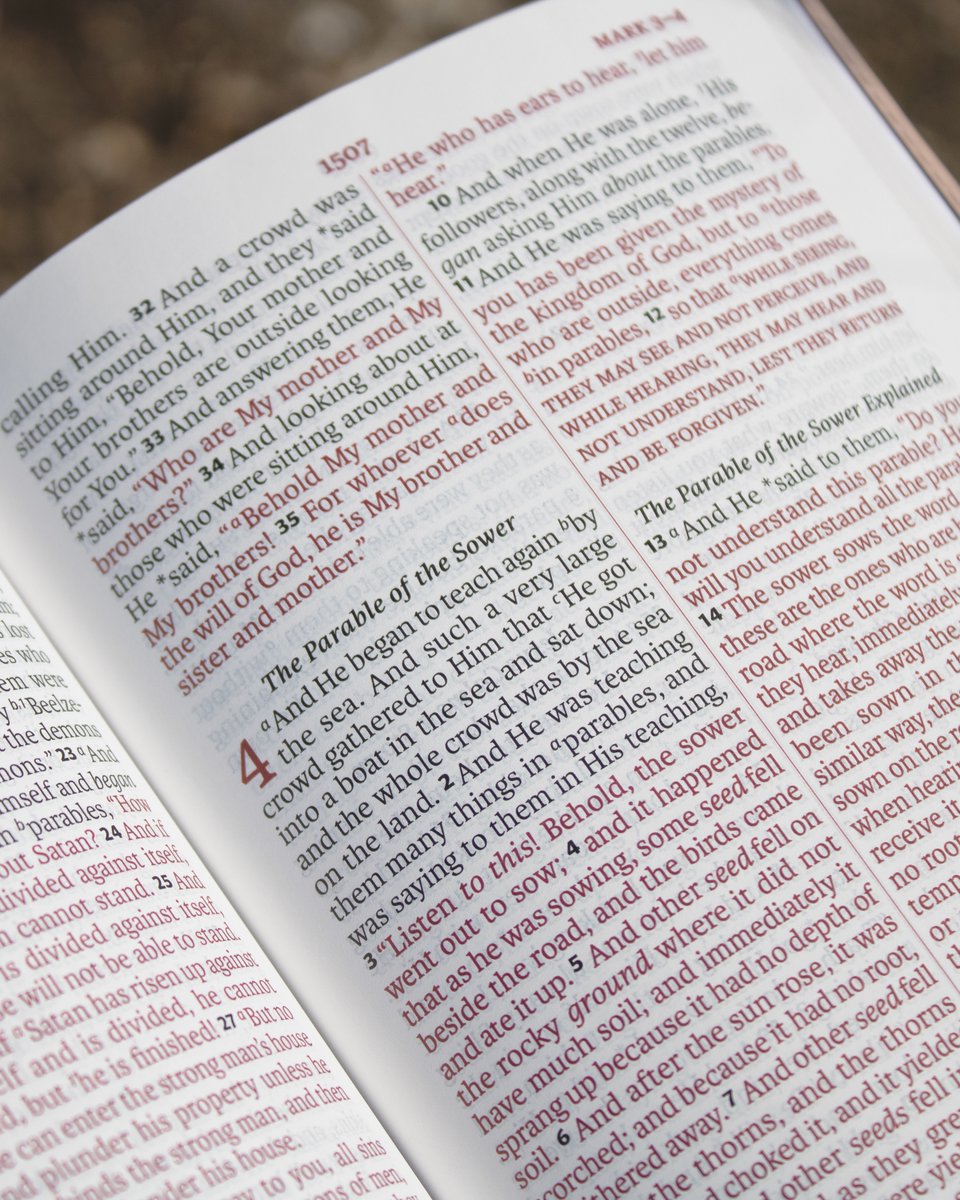 lost
es who
em were
y b,1"Beelze-
t the demons
mons." 23 aAnd
mself and began
n bparables, "How
out Satan? 24 And if
divided against itself,
n cannot stand. 25 And
is divided against itself,
e will not be able to stand.
f aSatan has risen up against
elf and is divided, he cannot
d, but 1he is finished! 27 a"But no
e can enter the strong man's house
d plunder his property unless he
nds the strong man, and then
der his house.
y to you, all sins
ons of men,
they
1507
MARK 3–4
calling Him. 32 And a crowd was
sitting around Him, and they *said
to Him, "Behold, Your mother and
Your brothers are outside looking
for You." 33 And answering them, He
*said, "Who are My mother and My
brothers?" 34 And looking about at
those who were sitting around Him,
He *said, "aBehold My mother and
My brothers! 35 For whoever adoes
the will of God, he is My brother and
sister and mother."
The Parable of the Sower
4 aAnd He began to teach again bby
the sea. And such a very large
crowd gathered to Him that cHe got
into a boat in the sea and sat down,
and the whole crowd was by the sea
on the land. 2 And He was teaching
them many things in aparables, and
was saying to them in His teaching,
3 "Listen to this! Behold, the sower
went out to sow; 4 and it happened
that as he was sowing, some seed fell
beside the road, and the birds came
and ate it up. 5 And other seed fell on
the rocky ground where it did not
have much soil; and immediately it
sprang up because it had no depth of
soil. 6 And after the sun rose, it was
scorched; and because it had no root,
ithered away. 7 And other seed fell
the thorns, and the thorns
choked it, and it yielde
other seeds fell i
as they gre
"aHe who has ears to hear, 1let him
hear."
10 And when He was alone, 1His
followers, along with the twelve, be-
gan asking Him about the parables.
11 And He was saying to them, "To
you has been given the mystery of
the kingdom of God, but to athose
who are outside, everything comes
bin parables, 12 so that aWHILE SEEING,
THEY MAY SEE AND NOT PERCEIVE, AND
WHILE HEARING, THEY MAY HEAR AND
NOT UNDERSTAND, LEST THEY RETURN
AND BE FORGIVEN."
The Parable of the Sower Explained
13 aAnd He *said to them, "Do you
not understand this parable? H
will you understand all the para
14 The sower sows the word
these are the ones who are
road where the word is
they hear, immediately
and takes away the
been sown in th
similar way, the
sown on the r
when hearin
receive it
no roo
temp
or